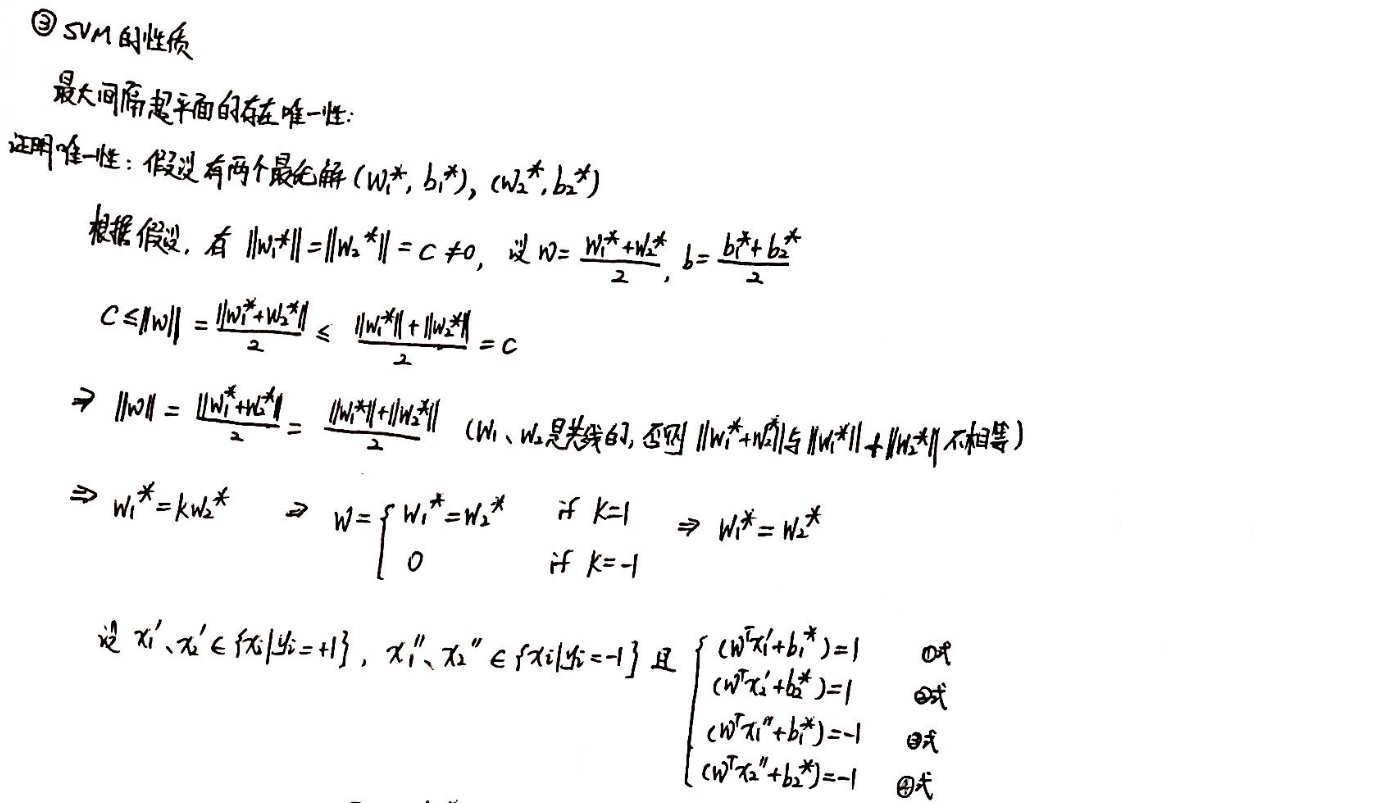 ③ SVM的性质
最大间隔超平面的存在唯一性:
证明唯一性: 假设有两个最优解 (w₁*, b₁*), (w₂*, b₂*)
根据假设, 有 ||w₁*|| = ||w₂*|| = C ≠ 0, 设 w = (w₁* + w₂*)/2, b = (b₁* + b₂*)/2
C ≤ ||w|| = ||w₁* + w₂*||/2 ≤ (||w₁*|| + ||w₂*||)/2 = C
⇒ ||w|| = ||w₁* + w₂*||/2 = (||w₁*|| + ||w₂*||)/2 (w₁、w₂是共线的, 否则 ||w₁* + w₂*||与||w₁*|| + ||w₂*|| 不相等)
⇒ w₁* = kw₂* ⇒ w = { w₁* = w₂* if k=1 ⇒ w₁* = w₂*
0 if k=-1
设 x₁'、x₂' ∈ {xᵢ|yᵢ=+1}, x₁''、x₂'' ∈ {xᵢ|yᵢ=-1} 且 { (wᵀx₁'+b₁*)=1 ①式
(wᵀx₂'+b₂*)=1 ②式
(wᵀx₁''+b₁*)=-1 ③式
(wᵀx₂''+b₂*)=-1 ④式